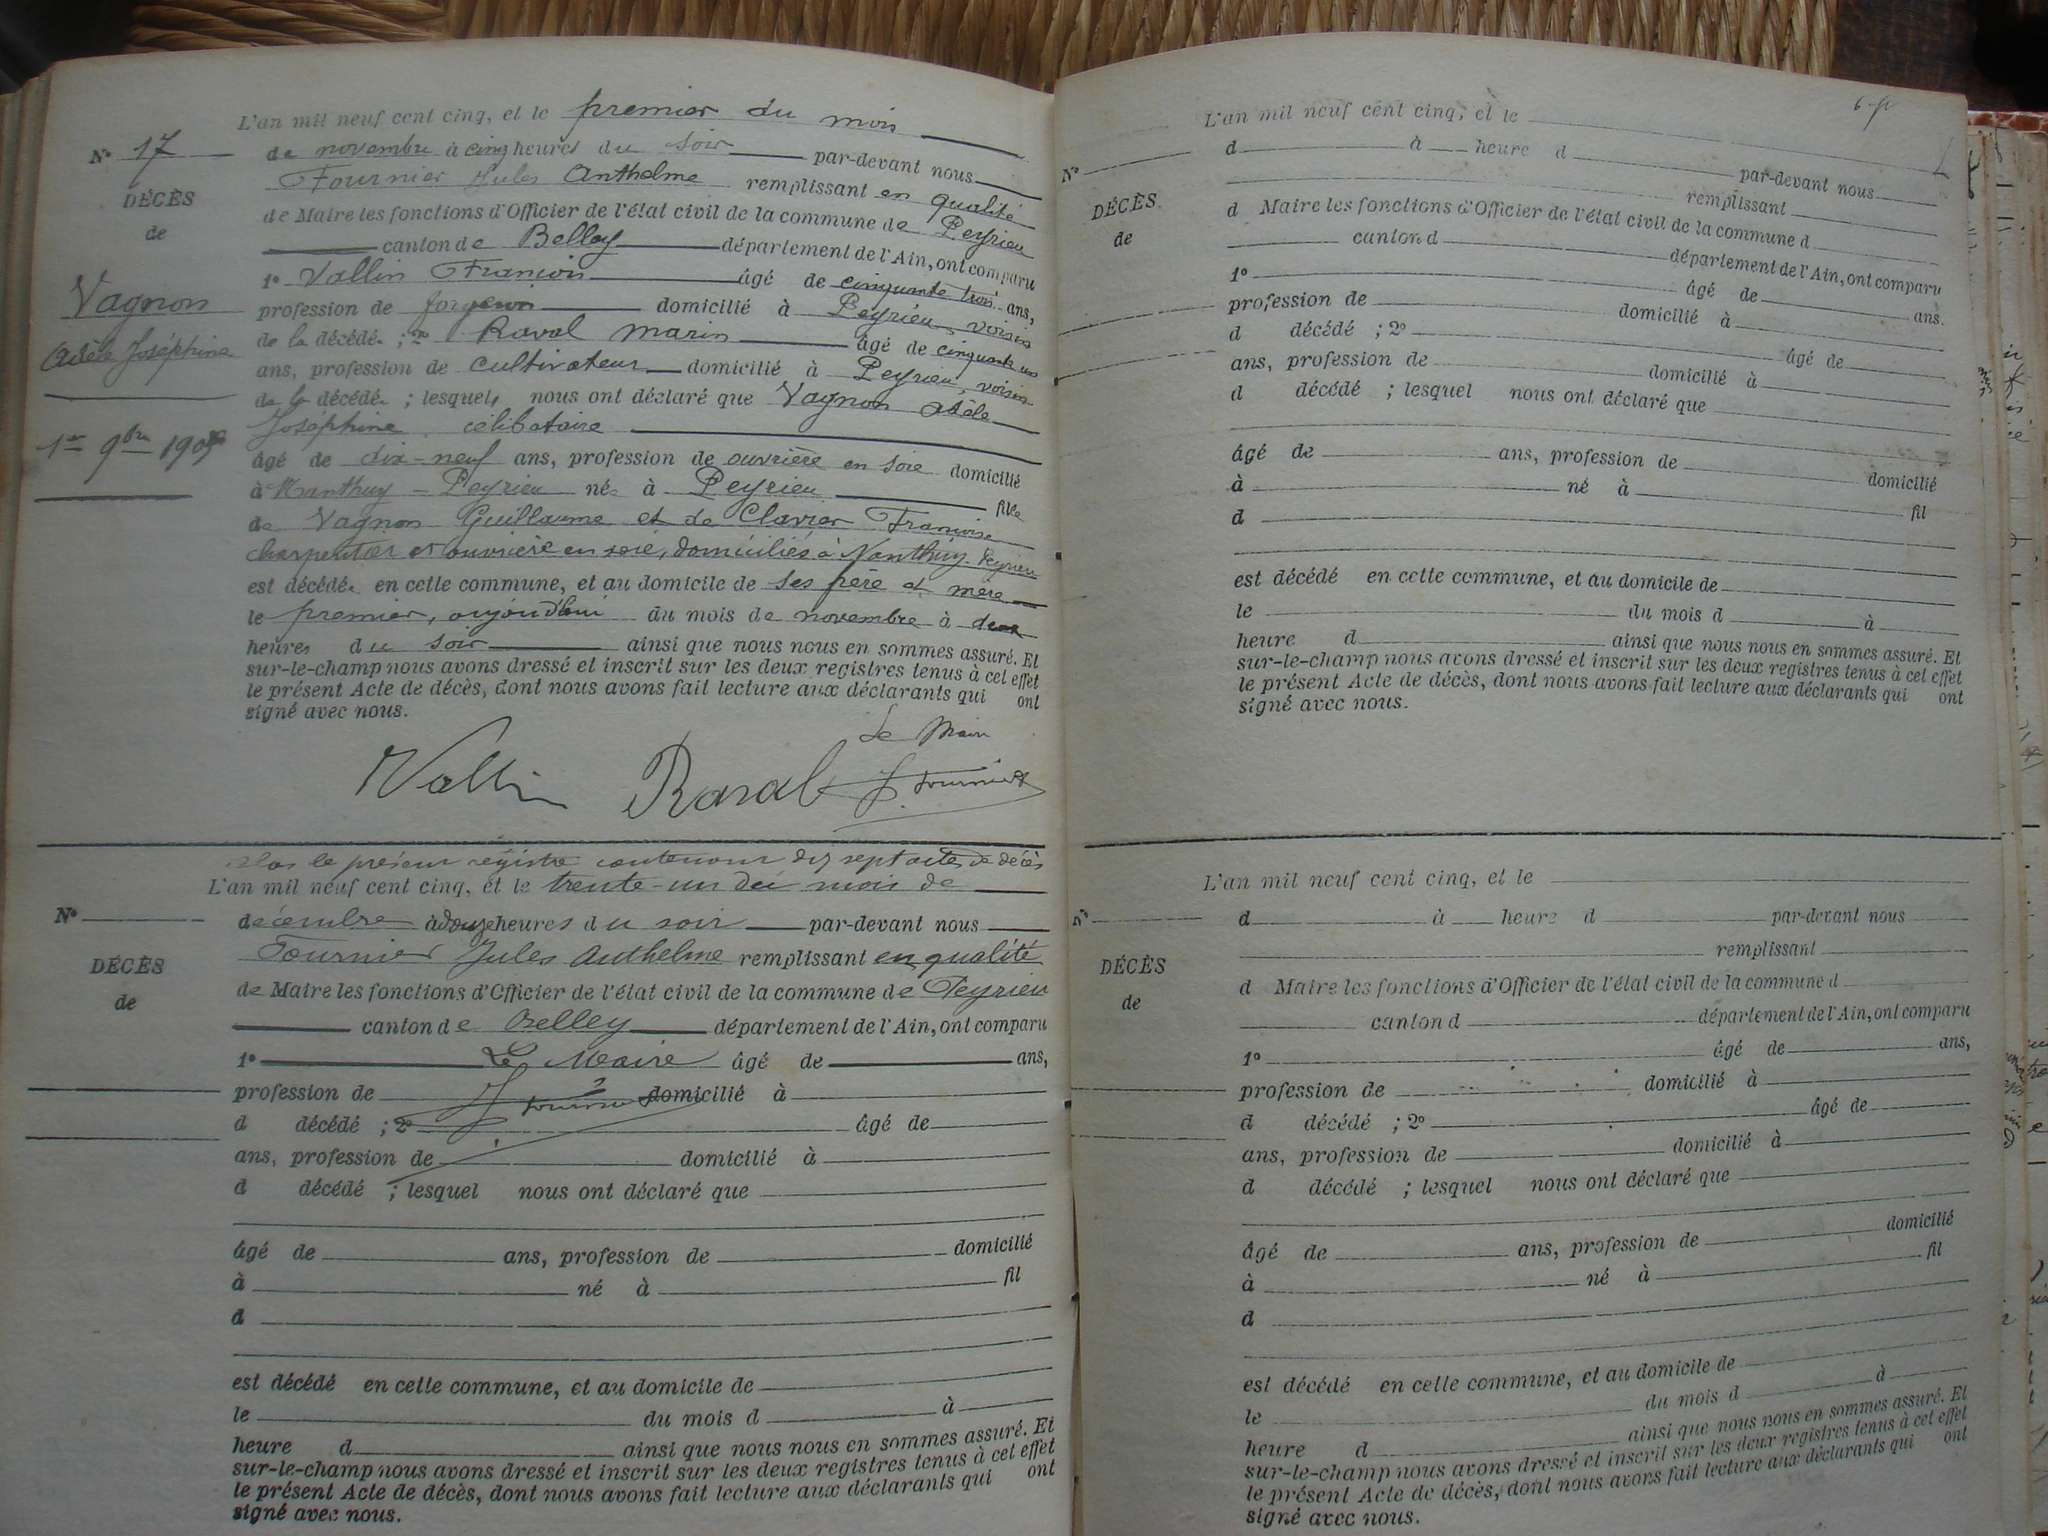 L'an mil neuf cent cinq, et le premier du mois
N° 17
de novembre à cinq heures du soir par-devant nous
Fournier Jules Anthelme remplissant en qualité
DÉCÈS
de Maire les fonctions d'Officier de l'état civil de la commune de Peyrieu
de
canton de Belley département de l'Ain, ont comparu
1° Vallin François âgé de cinquante trois ans,
Vagnon
profession de forgeron domicilié à Peyrieu, voisin
de la décédée ; 2° Raval Marin âgé de cinquante un
Adèle Joséphine
ans, profession de cultivateur domicilié à Peyrieu, voisin
de la décédée ; lesquels nous ont déclaré que Vagnon Adèle
Joséphine célibataire
1er 9bre 1905
âgé de dix-neuf ans, profession de ouvrière en soie domicilié
à Nanthuy-Peyrieu née à Peyrieu fille
de Vagnon Guillaume et de Clavier Françoise
charpentier et ouvrière en soie, domiciliés à Nanthuy-Peyrieu
est décédée en cette commune, et au domicile de ses père et mère
le premier, aujourd'hui du mois de novembre à deux
heures du soir ainsi que nous nous en sommes assuré. Et
sur-le-champ nous avons dressé et inscrit sur les deux registres tenus à cet effet
le présent Acte de décès, dont nous avons fait lecture aux déclarants qui ont
signé avec nous.
Le Maire
Vallin Raval J. Fournier
Clos le présent registre contenant dix sept actes de décès
L'an mil neuf cent cinq, et le trente-un du mois de
N°
décembre à douze heures du soir par-devant nous
Fournier Jules Anthelme remplissant en qualité
DÉCÈS
de Maire les fonctions d'Officier de l'état civil de la commune de Peyrieu
de
canton de Belley département de l'Ain, ont comparu
1° Le Maire âgé de ans,
profession de J. Fournier domicilié à
d décédé ; 2° âgé de
ans, profession de domicilié à
d décédé ; lesquel nous ont déclaré que
âgé de ans, profession de domicilié
à né à fil
d
est décédé en cette commune, et au domicile de
le du mois d à
heure d ainsi que nous nous en sommes assuré. Et
sur-le-champ nous avons dressé et inscrit sur les deux registres tenus à cet effet
le présent Acte de décès, dont nous avons fait lecture aux déclarants qui ont
signé avec nous.
L'an mil neuf cent cinq, et le
N°
d à heure d par-devant nous
remplissant
DÉCÈS
d Maire les fonctions d'Officier de l'état civil de la commune d
de
canton d département de l'Ain, ont comparu
1° âgé de ans.
profession de domicilié à
d décédé ; 2° âgé de
ans, profession de domicilié à
d décédé ; lesquel nous ont déclaré que
âgé de ans, profession de domicilié
à né à fil
d
est décédé en cette commune, et au domicile de
le du mois d à
heure d ainsi que nous nous en sommes assuré. Et
sur-le-champ nous avons dressé et inscrit sur les deux registres tenus à cet effet
le présent Acte de décès, dont nous avons fait lecture aux déclarants qui ont
signé avec nous.
L'an mil neuf cent cinq, et le
N°
d à heure d par-devant nous
remplissant
DÉCÈS
d Maire les fonctions d'Officier de l'état civil de la commune d
de
canton d département de l'Ain, ont comparu
1° âgé de ans,
profession de domicilié à
d décédé ; 2° âgé de
ans, profession de domicilié à
d décédé ; lesquel nous ont déclaré que
âgé de ans, profession de domicilié
à né à fil
d
est décédé en cette commune, et au domicile de
le du mois d à
heure d ainsi que nous nous en sommes assuré. Et
sur-le-champ nous avons dressé et inscrit sur les deux registres tenus à cet effet
le présent Acte de décès, dont nous avons fait lecture aux déclarants qui ont
signé avec nous.